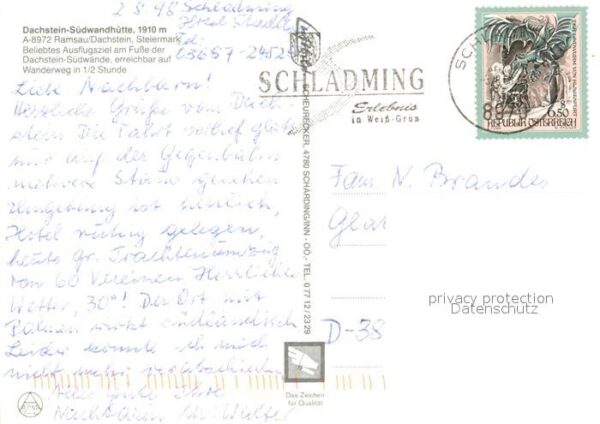 2 8 98 Schladming
Hotel
Tel.
03687-24521
Dachstein-Südwandhütte, 1910 m
A-8972 Ramsau/Dachstein, Steiermark
Beliebtes Ausflugsziel am Fuße der
Dachstein-Südwände, erreichbar auf
Wanderweg in 1/2 Stunde
Liebe Nachbarn!
Herzliche Grüße vom Dach
stein. Die Fahrt verlief glatt
nur auf der Gegenbahn
mehrere Staus gewesen
Umgebung ist herrlich,
Hotel ruhig gelegen,
heute gr. Trachtenumzug
von 60 Vereinen. Herrliches
Wetter, 30°! Der Ort mit
Palmen wirkt südländisch
Leider konnte ich mich
nicht mehr verabschieden
Alles Gute Ihre
Nachbarin
SCHLADMING
Erlebnis
in Weiß-Grün
8970
6.50
REPUBLIK ÖSTERREICH
SCHEURECKER, 4780 SCHÄRDING/INN - OÖ. - TEL. 0 77 12 / 23 29
Fam. N. Brandes
D-38
privacy protection
Datenschutz
Das Zeichen
für Qualität